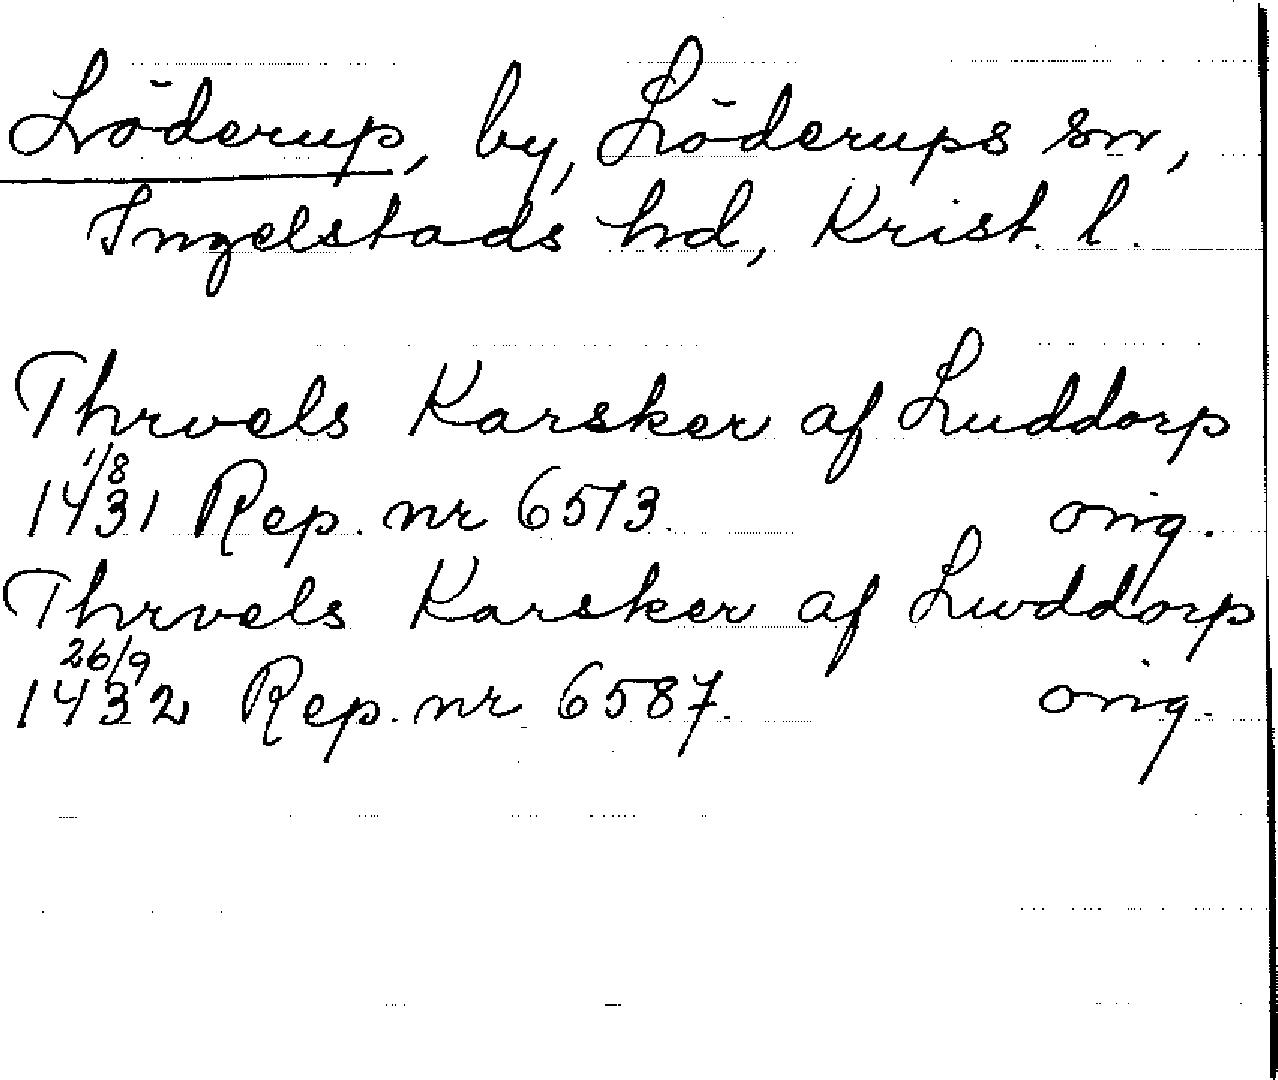 Löderup, by, Löderups sn,
Ingelstads hd, Krist. l.
Thrvels Karsker af Luddorp
1/8
1431 Rep. nr 6513. orig.
Thrvels Karsker af Luvddorp
26/9
1432 Rep. nr 6587. orig.